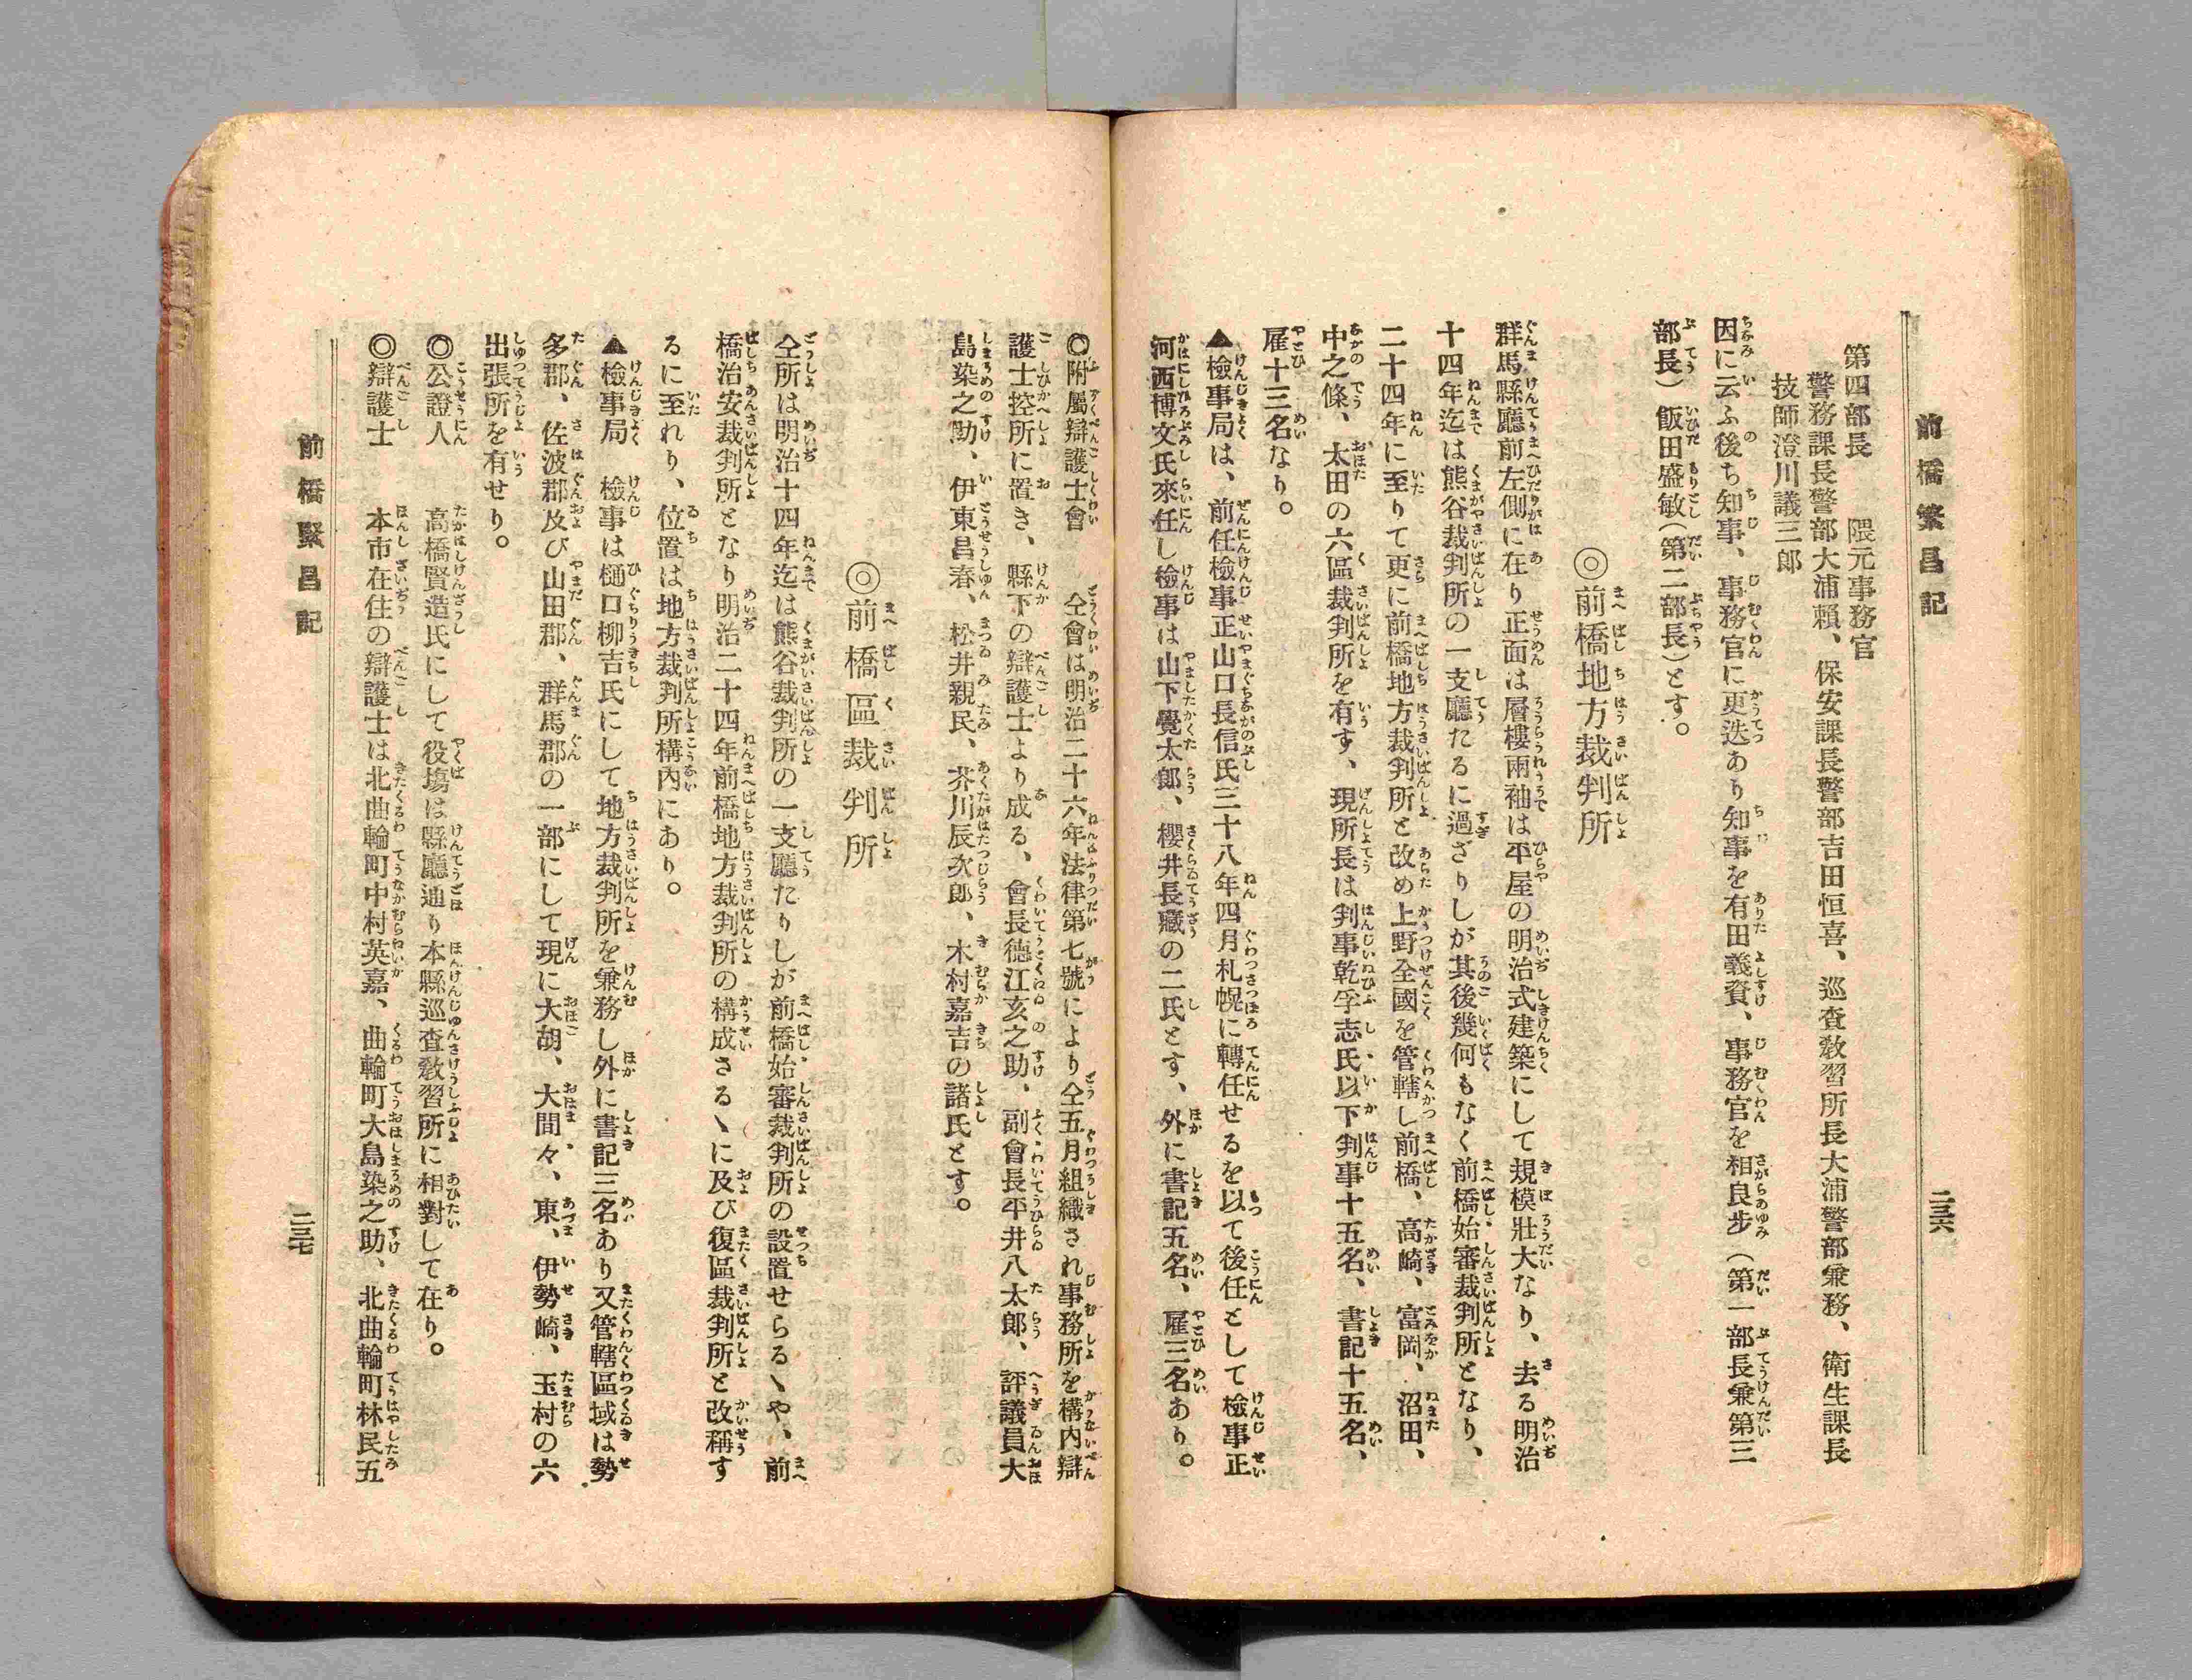 前橋繁昌記
二三六
第四部長　隈元事務官
警務課長警部大浦賴、保安課長警部吉田恒喜、巡査敎習所長大浦警部兼務、衛生課長
技師澄川議三郎
因に云ふ後ち知事、事務官に更迭あり知事を有田義資、事務官を相良步（第一部長兼第三
部長）飯田盛敏（第二部長）とす。
◎前橋地方裁判所
群馬縣廳前左側に在り正面は層樓兩袖は平屋の明治式建築にして規模壯大なり、去る明治
十四年迄は熊谷裁判所の一支廳たるに過ざりしが其後幾何もなく前橋始審裁判所となり、
二十四年に至りて更に前橋地方裁判所と改め上野全國を管轄し前橋、高崎、富岡、沼田、
中之條、太田の六區裁判所を有す、現所長は判事乾孚志氏以下判事十五名、書記十五名、
雇十三名なり。
▲檢事局は、前任檢事正山口長信氏三十八年四月札幌に轉任せるを以て後任として檢事正
河西博文氏來任し檢事は山下覺太郎、櫻井長藏の二氏とす、外に書記五名、雇三名あり。
◎附屬辯護士會　仝會は明治二十六年法律第七號により仝五月組織され事務所を構内辯
護士控所に置き、縣下の辯護士より成る、會長德江亥之助、副會長平井八太郎、評議員大
島染之助、伊東昌春、松井親民、芥川辰次郎、木村嘉吉の諸氏とす。
◎前橋區裁判所
仝所は明治十四年迄は熊谷裁判所の一支廳たりしが前橋始審裁判所の設置せらるゝや、前
橋治安裁判所となり明治二十四年前橋地方裁判所の構成さるゝに及び復區裁判所と改稱す
るに至れり、位置は地方裁判所構内にあり。
▲檢事局　檢事は樋口柳吉氏にして地方裁判所を兼務し外に書記三名あり又管轄區域は勢
多郡、佐波郡及び山田郡、群馬郡の一部にして現に大胡、大間々、東、伊勢崎、玉村の六
出張所を有せり。
◎公證人　高橋賢造氏にして役塲は縣廳通り本縣巡査敎習所に相對して在り。
◎辯護士　本市在住の辯護士は北曲輪町中村英嘉、曲輪町大島染之助、北曲輪町林民五
前橋繁昌記
二三七